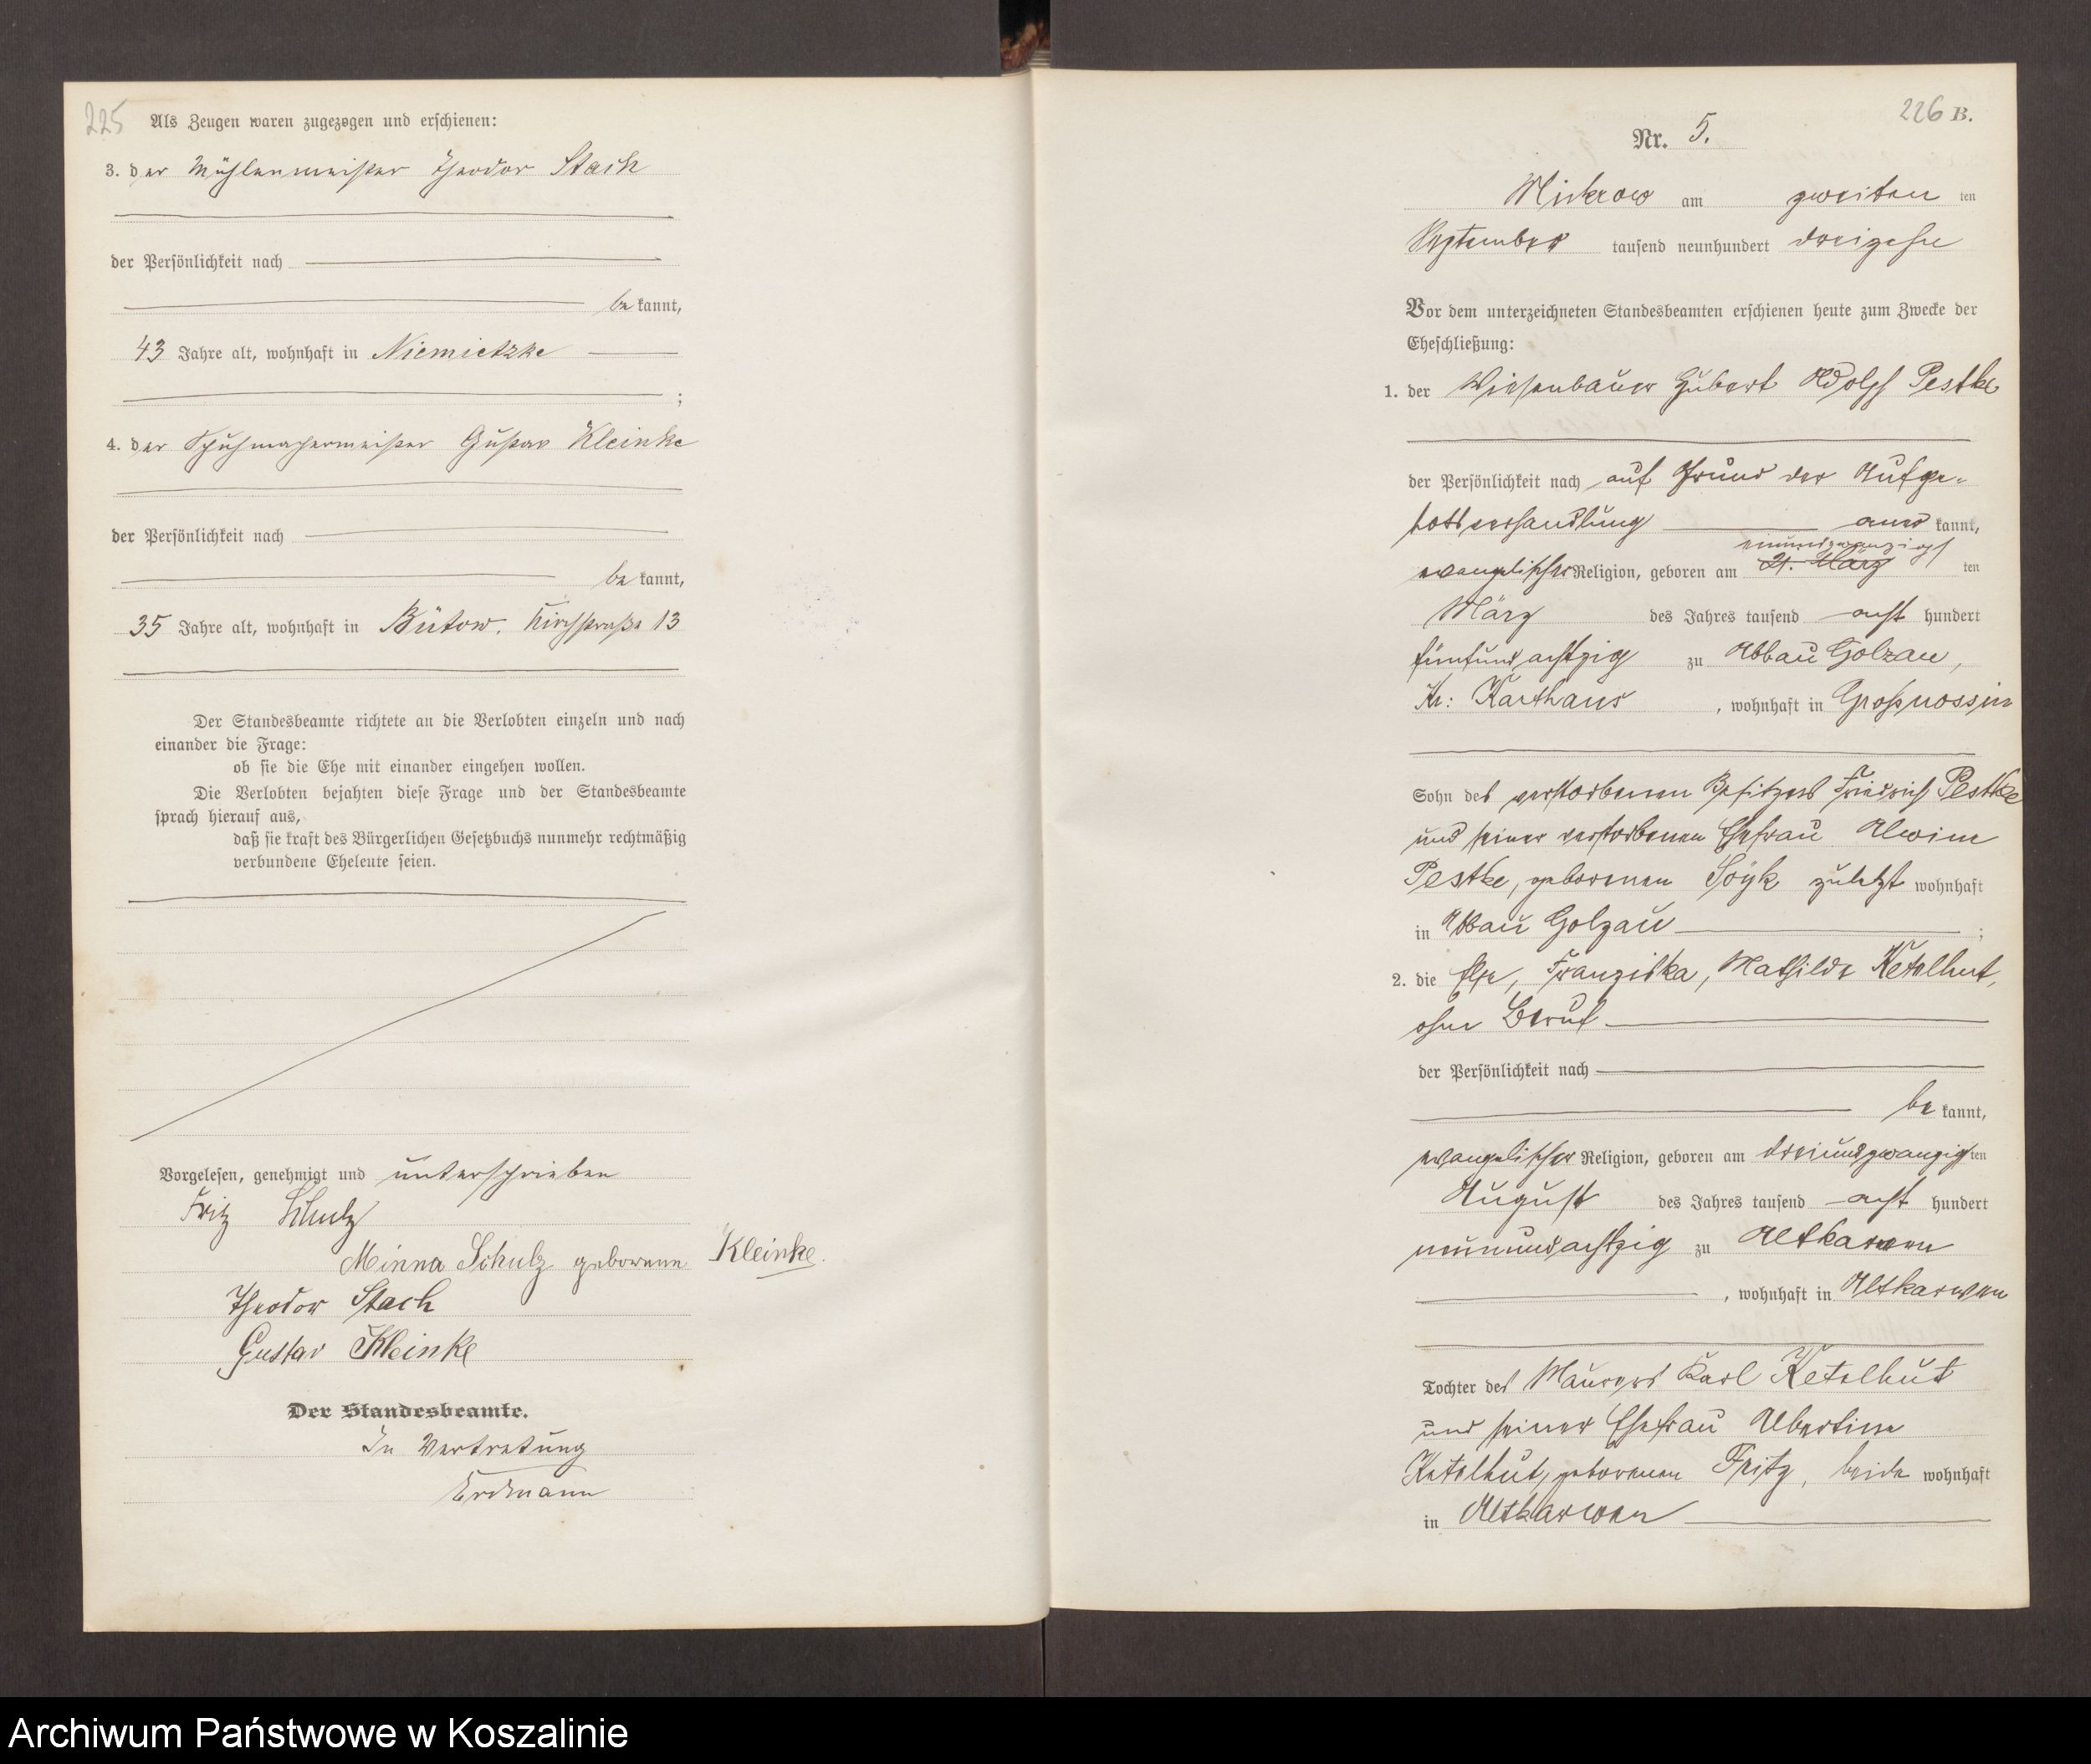 225
Als Zeugen waren zugezogen und erschienen:
3. der Mühlenmeister Theodor Stach
der Persönlichkeit nach
be kannt,
43 Jahre alt, wohnhaft in Niemietzke
;
4. der Schuhmachermeister Gustav Kleinke
der Persönlichkeit nach
be kannt,
35 Jahre alt, wohnhaft in Bütow, Kirchstraße 13
Der Standesbeamte richtete an die Verlobten einzeln und nach
einander die Frage:
ob sie die Ehe mit einander eingehen wollen.
Die Verlobten bejahten diese Frage und der Standesbeamte
sprach hierauf aus,
daß sie kraft des Bürgerlichen Gesetzbuchs nunmehr rechtmäßig
verbundene Eheleute seien.
Vorgelesen, genehmigt und unterschrieben
Fritz Schulz
Minna Schulz geborene Kleinke.
Theodor Stach
Gustav Kleinke
Der Standesbeamte.
In Vertretung
Erdmann
226 B.
Nr. 5.
Mickrow am zweiten ten
September tausend neunhundert dreizehn
Vor dem unterzeichneten Standesbeamten erschienen heute zum Zwecke der
Eheschließung:
1. der Wiesenbauer Hubert Adolph Pestke
der Persönlichkeit nach auf Grund der Aufge-
botsverhandlung aner kannt,
einundzwanzigst
evangelischer Religion, geboren am 21. März ten
März des Jahres tausend acht hundert
fünfundachtzig zu Abbau Golzau,
Kr: Karthaus, wohnhaft in Großnossin
Sohn des verstorbenen Besitzers Friedrich Pestke
und seiner verstorbenen Ehefrau Alwine
Pestke, geborenen Söyk zuletzt wohnhaft
in Abbau Golzau ;
2. die Else, Franziska, Mathilde Ketelhut,
ohne Beruf
der Persönlichkeit nach
be kannt,
evangelischer Religion, geboren am dreiundzwanzigsten
August des Jahres tausend acht hundert
neunundachtzig zu Altkarwen
, wohnhaft in Altkarwen
Tochter des Maurers Karl Ketelhut
und seiner Ehefrau Albertine
Ketelhut, geborenen Fritz, beide wohnhaft
in Altkarwen
Archiwum Państwowe w Koszalinie